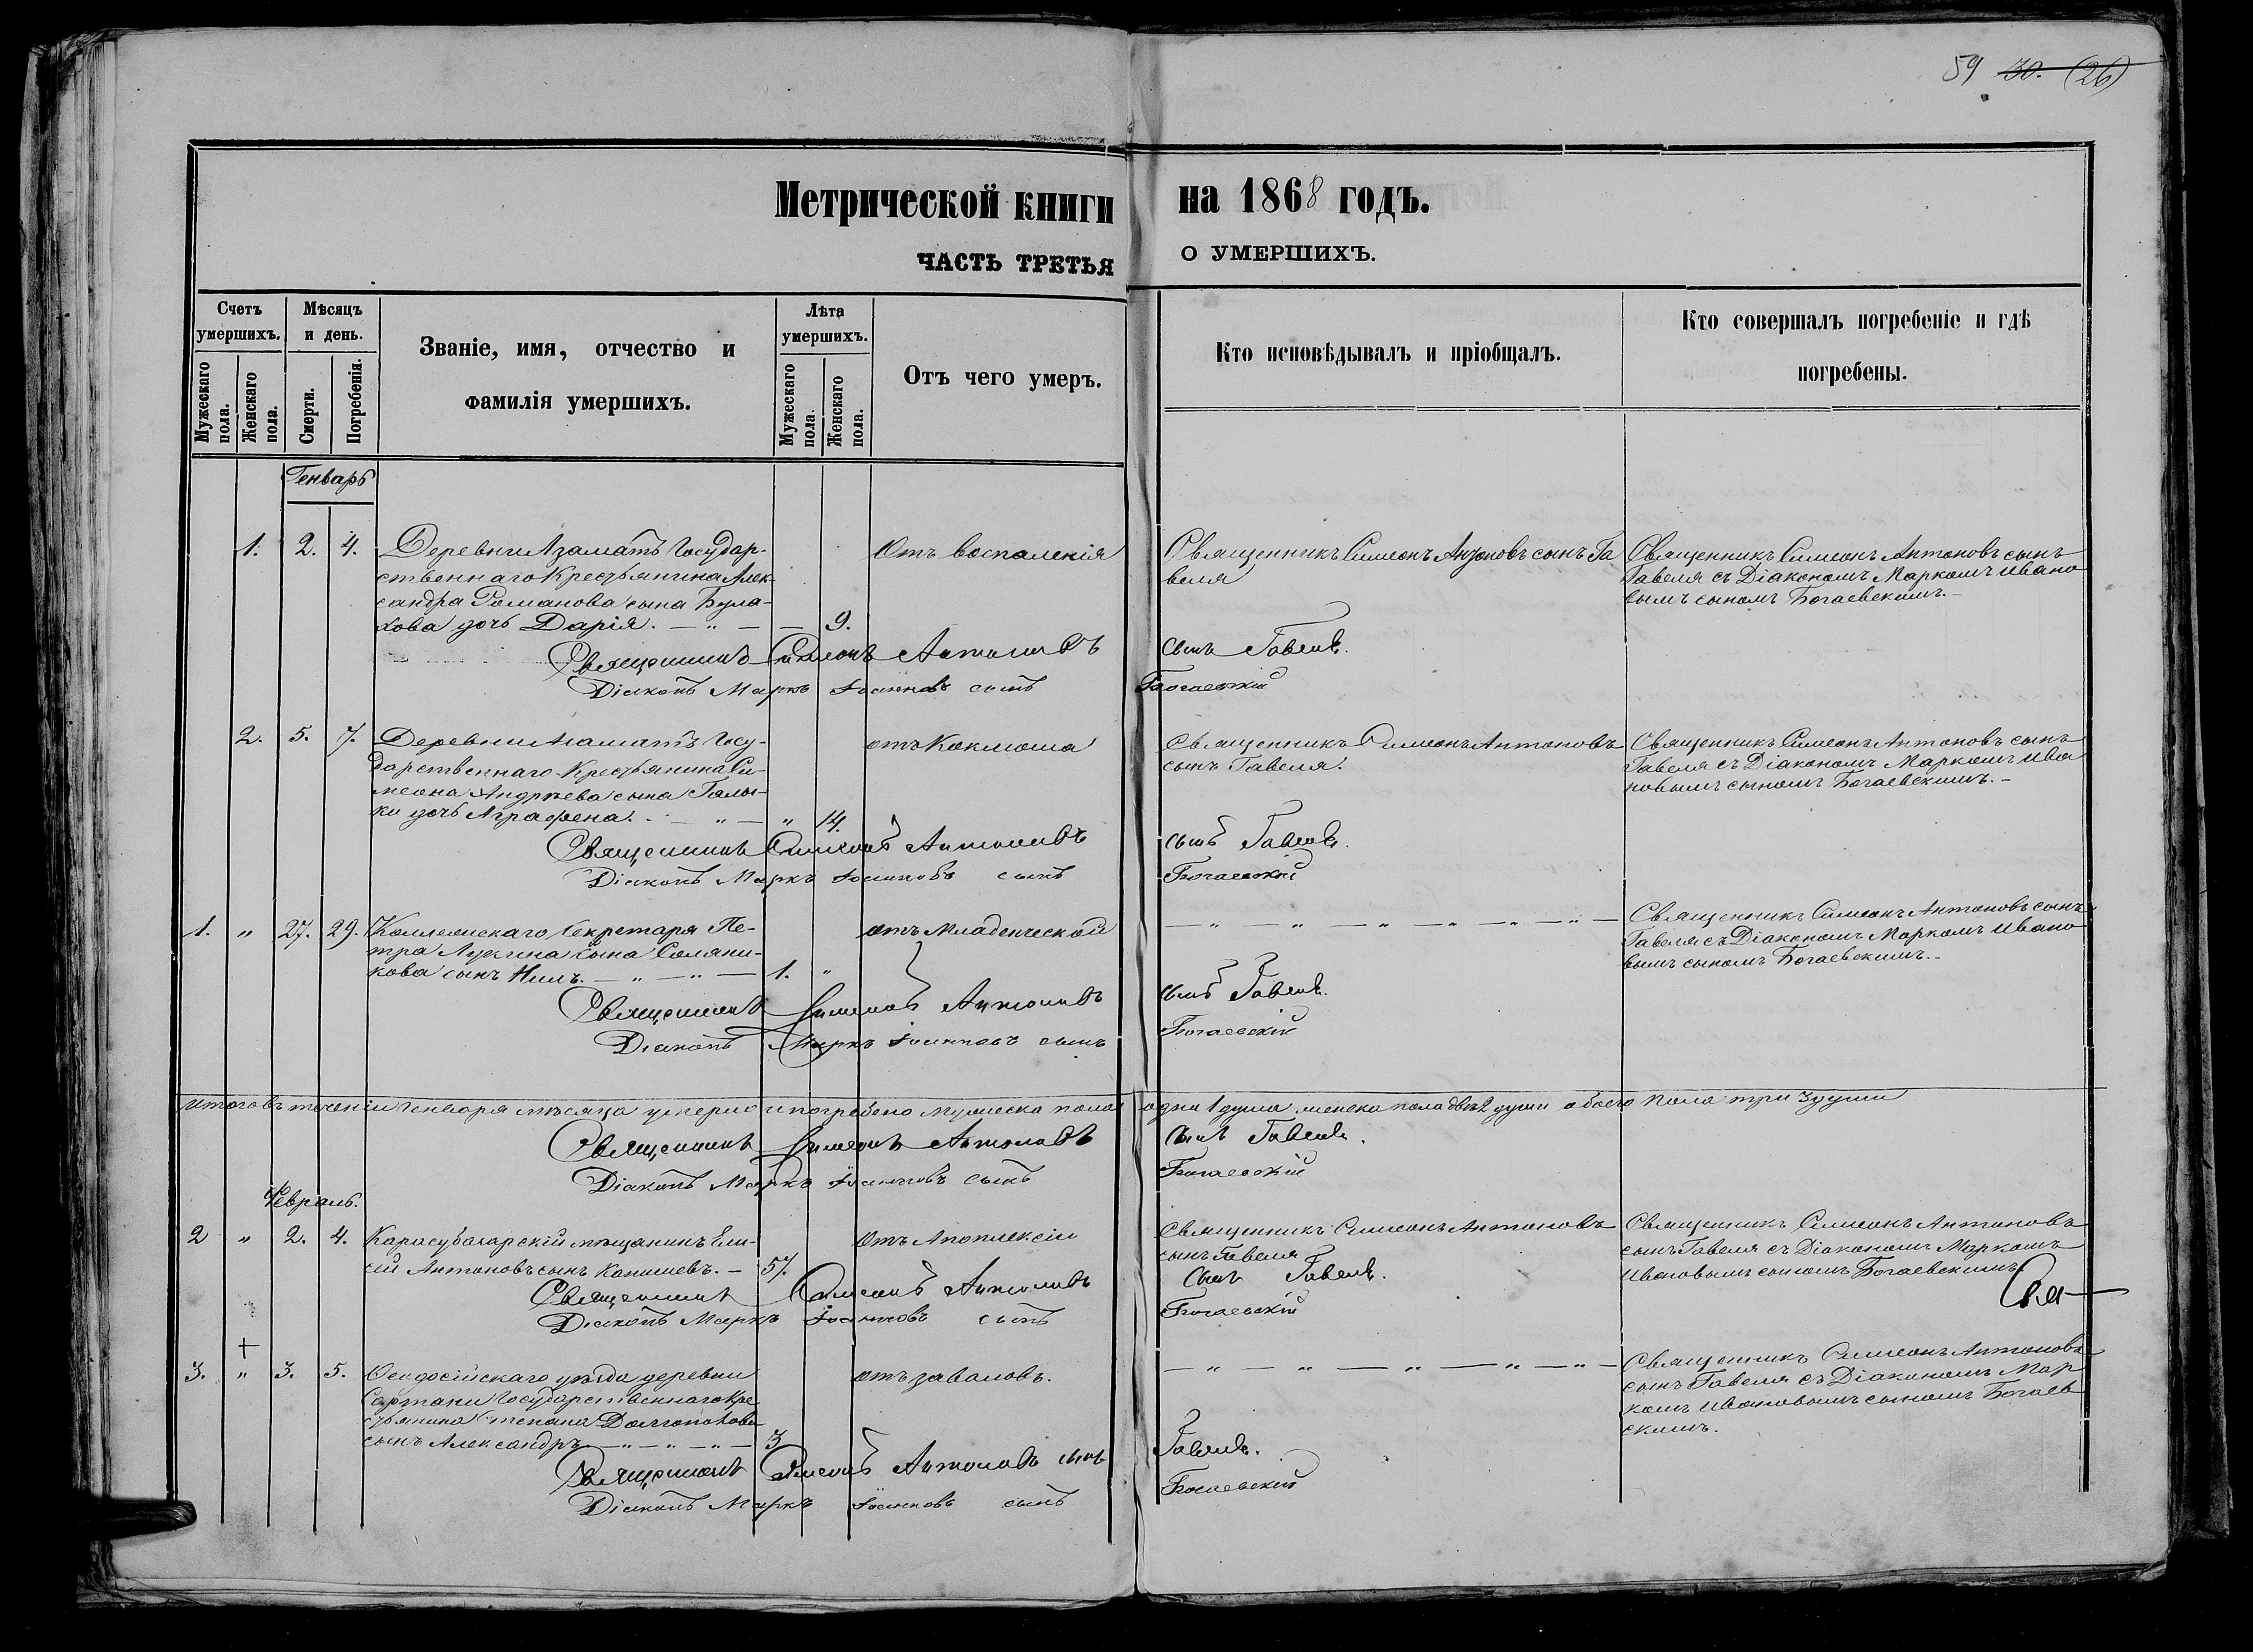 59 30. (26)
Метрической книги на 1868 годъ.
ЧАСТЬ ТРЕТЬЯ О УМЕРШИХЪ.
Счетъ умершихъ.
Мужескаго пола.
Женскаго пола.
Мѣсяцъ и день.
Смерти.
Погребенія.
Званіе, имя, отчество и
фамилія умершихъ.
Лѣта умершихъ.
Мужескаго пола.
Женскаго пола.
Отъ чего умеръ.
Кто исповѣдывалъ и пріобщалъ.
Кто совершалъ погребеніе и гдѣ
погребены.
Генварь
1. 2. 4. Деревни Азаматъ Государ-
ственнаго Крестьянина Алек-
сандра Романова сына Була-
хова дочь Дарія. — „ — — 9.
Отъ воспаленія
Священникъ Симеонъ Антоновъ сынъ Га
веля
Священникъ Симеонъ Антоновъ сынъ
Гавеля съ Діакономъ Маркомъ Ивано
вымъ сыномъ Богаевскимъ.-
Священникъ Симеонъ Антоновъ сынъ Гавеля.
Діаконъ Маркъ Іоанновъ сынъ Богаевскій
2. 5. 7. Деревни Азаматъ Госу-
дарственнаго Крестьянина Си-
меона Андрѣева сына Галы-
ки дочь Аграфена. - — „ — „ 14.
отъ Коклюша
Священникъ Симеонъ Антоновъ
сынъ Гавеля.
Священникъ Симеонъ Антоновъ сынъ
Гавеля съ Діакономъ Маркомъ Ива
новымъ сыномъ Богаевскимъ.-
Священникъ Симеонъ Антоновъ сынъ Гавеля.
Діаконъ Маркъ Іоанновъ сынъ Богаевскій
1. „ 27. 29. Коллежскаго Секретаря Пе-
тра Лукина сына Соляни-
кова сынъ Нилъ. — „ — „ — 1. „
отъ Младенческой
— „ — „ — „ — „ — „ — „ —
Священникъ Симеонъ Антоновъ сынъ
Гавеля съ Діакономъ Маркомъ Ивано
вымъ сыномъ Богаевскимъ.-
Священникъ Симеонъ Антоновъ сынъ Гавеля.
Діаконъ Маркъ Іоанновъ сынъ Богаевскій
Итого въ теченіи Генваря мѣсяца умерло и погребено мужеска пола одна 1 душа женска пола двѣ 2 души обоего пола три 3 души
Священникъ Симеонъ Антоновъ сынъ Гавеля.
Діаконъ Маркъ Іоанновъ сынъ Богаевскій
Февраль.
2 „ 2. 4. Карасубазарскій мѣщанинъ Ели-
сей Антоновъ сынъ Капшеевъ. — 57.
Отъ Апоплексіи
Священникъ Симеонъ Антоновъ
сынъ Гавеля
Священникъ Симеонъ Антоновъ
сынъ Гавеля съ Діакономъ Маркомъ
Ивановымъ сыномъ Богаевскимъ
Священникъ Симеонъ Антоновъ сынъ Гавеля.
Діаконъ Маркъ Іоанновъ сынъ Богаевскій
Свя
+
3. „ 3. 5. Ѳеодосійскаго уѣзда деревни
Сартаки Государственнаго Кре
стьянина Степана Долгополова
сынъ Александръ — „ — „ — „ — 3
отъ заваловъ.
— „ — „ — „ — „ — „ —
Священникъ Симеонъ Антоновъ
сынъ Гавеля съ Діакономъ Мар
комъ Ивановымъ сыномъ Богаев
скимъ.
Священникъ Симеонъ Антоновъ сынъ Гавеля.
Діаконъ Маркъ Іоанновъ сынъ Богаевскій